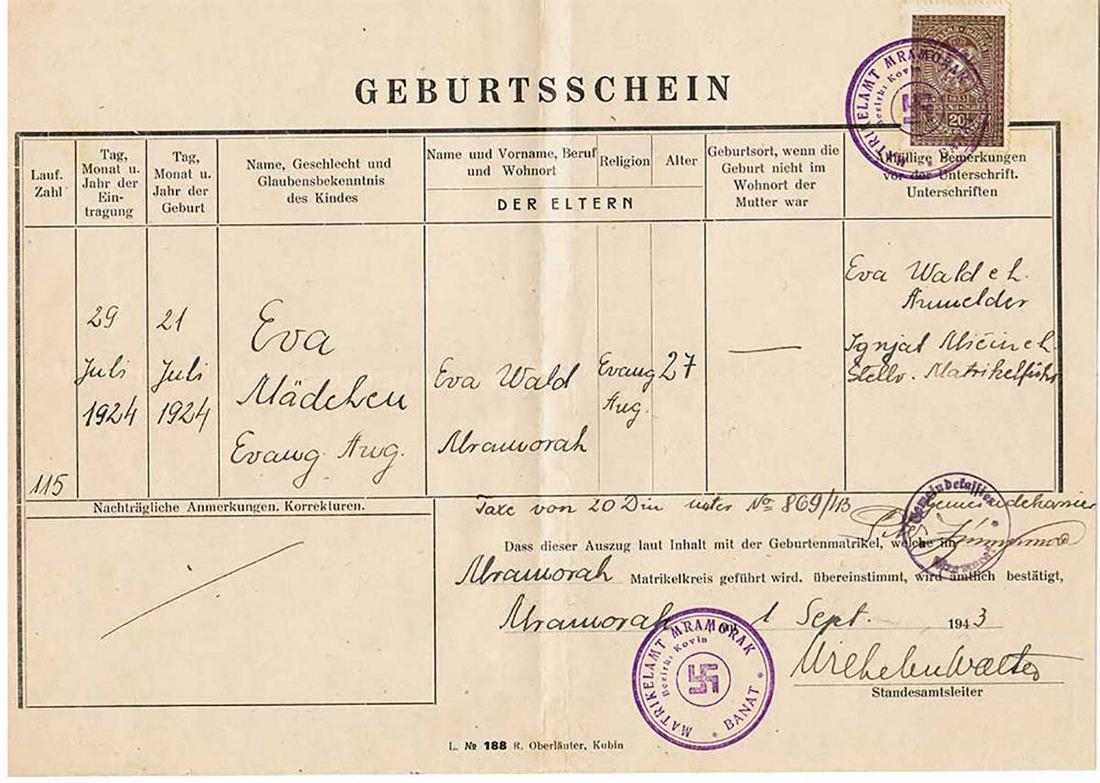 GEBURTSSCHEIN
MATRIKELAMT MRAMORAK
Bezirk: Kovin
20
Lauf.
Zahl
Tag,
Monat u.
Jahr der
Ein-
tragung
Tag,
Monat u.
Jahr der
Geburt
Name, Geschlecht und
Glaubensbekenntnis
des Kindes
Name und Vorname, Beruf
und Wohnort
Religion
Alter
DER ELTERN
Geburtsort, wenn die
Geburt nicht im
Wohnort der
Mutter war
Allfällige Bemerkungen
vor der Unterschrift.
Unterschriften
115
29
Juli
1924
21
Juli
1924
Eva
Mädchen
Evang. Aug.
Eva Wald
Mramorak
Evang
Aug.
27
—
Eva Wald e.h.
Anmelder
Ignjat e.h.
Stellv. Matrikelführ
Nachträgliche Anmerkungen. Korrekturen.
Taxe von 20 Din unter No 869/43
Gemeindekassier
Dass dieser Auszug laut Inhalt mit der Geburtenmatrikel, welche im
Mramorak Matrikelkreis geführt wird, übereinstimmt, wird amtlich bestätigt,
Mramorak 1 Sept. 1943
MATRIKELAMT MRAMORAK
Bezirk: Kovin
* BANAT *
Wilhelm Walter
Standesamtsleiter
L. № 188 R. Oberläuter, Kubin